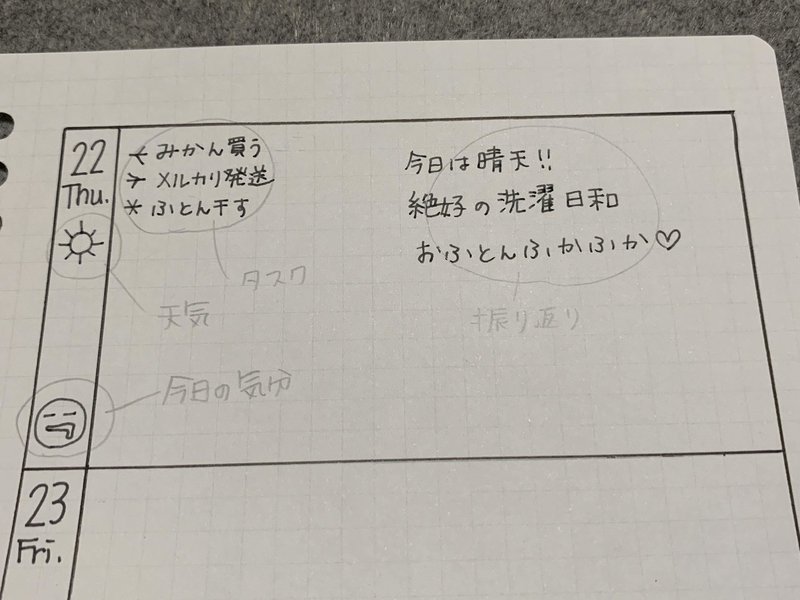 22
Thu.
< みかん買う
> メルカリ発送
* ふとん干す
今日は晴天!!
絶好の洗濯日和
おふとんふかふか♡
タスク
天気
振り返り
今日の気分
23
Fri.